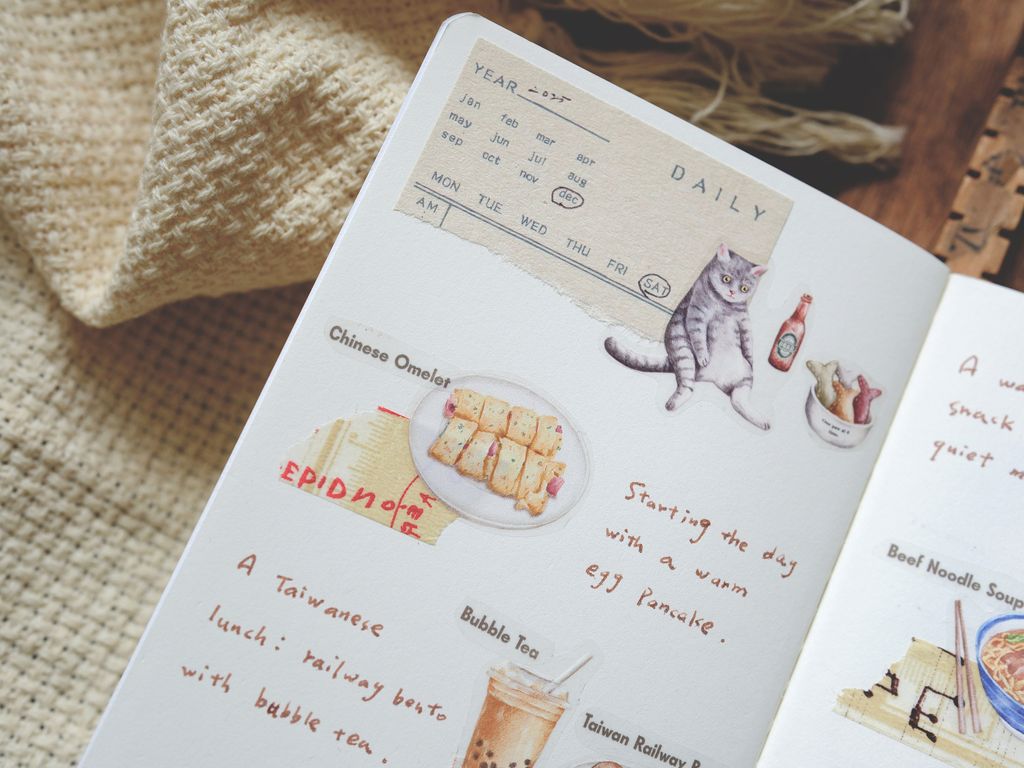 YEAR 2025
jan feb mar apr
may jun jul aug
sep oct nov dec
DAILY
MON TUE WED THU FRI SAT
AM
Chinese Omelet
EPIDNO
Starting the day
with a warm
egg Pancake.
A Taiwanese
lunch: railway bento
with bubble tea.
Bubble Tea
Taiwan Railway
A
snack
quiet
Beef Noodle Soup